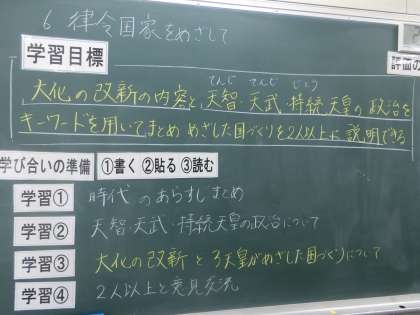 6 律令国家をめざして
学習目標
評価の
てんじ てんむ じとう
大化の改新の内容と、天智・天武・持統天皇の政治を
キーワードを用いてまとめ めざした国づくりを2人以上に説明できる
学び合いの準備 ①書く ②貼る ③読む
学習① 時代のあらすじまとめ
学習② 天智・天武・持統天皇の政治について
学習③ 大化の改新と3天皇がめざした国づくりについて
学習④ 2人以上と意見交流